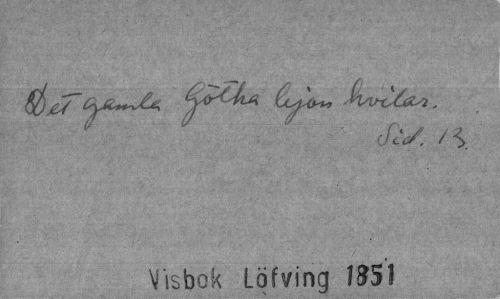 Det gamla Götha lejon hvilar.
Sid. 13.
Visbok Löfving 1851